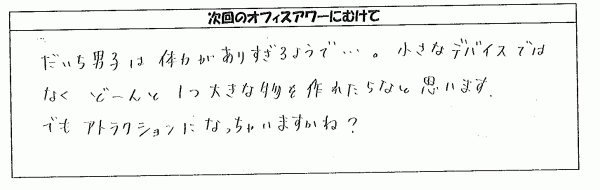 次回のオフィスアワーにむけて
だいち男子は体力がありすぎるようで…。小さなデバイスでは
なく どーんと 1つ大きな物を作れたらなと思います.
でもアトラクションになっちゃいますかね？